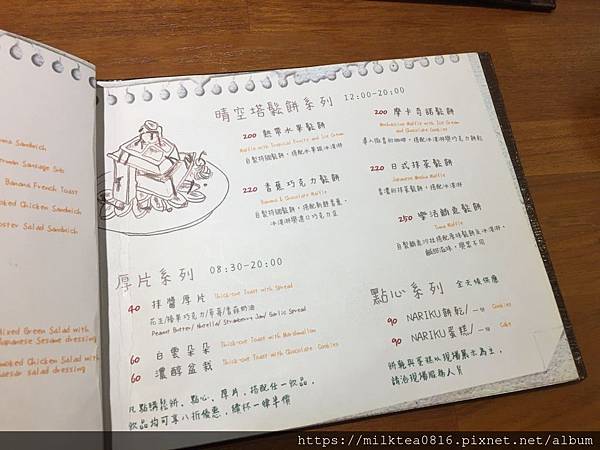 Sandwich
Sausage Sets
Banana French Toast
Smoked Chicken Sandwich
Salad Sandwich
Mixed Green Salad with
Japanese Sesame dressing
Smoked Chicken Salad with
Caesar Salad dressing
晴空塔鬆餅系列 12:00-20:00
200 熱帶水果鬆餅
Waffle with Tropical Fruits and Ice Cream
自製特調鬆餅，搭配水果跟冰淇淋
220 香蕉巧克力鬆餅
Banana & Chocolate Waffle
自製特調鬆餅，搭配新鮮香蕉，
冰淇淋與進口巧克力豆
200 摩卡奇諾鬆餅
Waffle with Ice Cream
and Chocolate Cookies
220 日式抹茶鬆餅
Japanese Matcha Waffle
香濃的抹茶鬆餅，搭配冰淇淋
250 樂活鮪魚鬆餅
Tuna Waffle
厚片系列 08:30-20:00
40 抹醬厚片 Thick-cut Toast with Spread
花生/榛果巧克力/草莓/香蒜奶油
Peanut Butter/ Nutella/ Strawberry Jam/ Garlic Spread
60 白雲朵朵 Thick-cut Toast with Marshmallow
60 濃醇盆栽 Thick-cut Toast with Chocolate Cookies
凡點購鬆餅、點心、厚片，搭配任一飲品，
飲品均可享八折優惠，續杯一律半價
點心系列 全天候供應
90 NARIKU餅乾/一份 Cookies
90 NARIKU蛋糕/一份 Cake
餅乾與蛋糕以現場展示為主，
請洽現場服務人員
https://milktea0816.pixnet.net/album